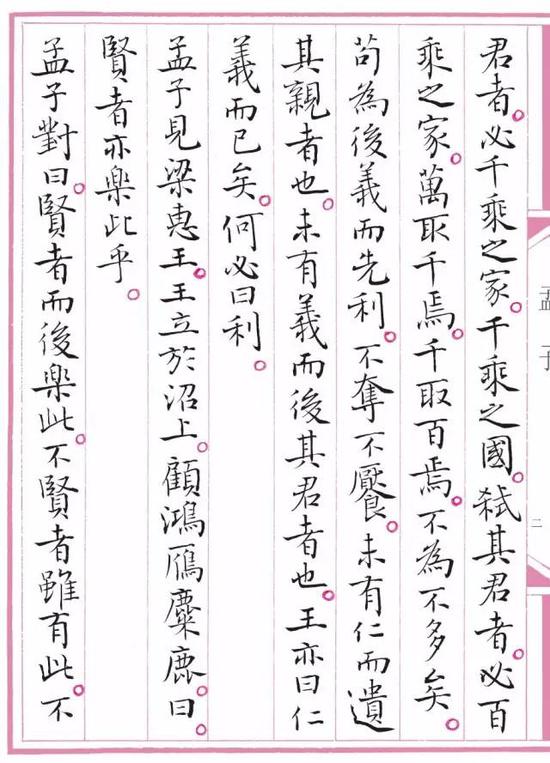 孟子
二
君者。必千乘之家。千乘之國。弒其君者。必百
乘之家。萬取千焉。千取百焉。不為不多矣。
苟為後義而先利。不奪不饜。未有仁而遺
其親者也。未有義而後其君者也。王亦曰仁
義而已矣。何必曰利。
孟子見梁惠王。王立於沼上。顧鴻鴈麋鹿。曰。
賢者亦樂此乎。
孟子對曰。賢者而後樂此。不賢者雖有此。不